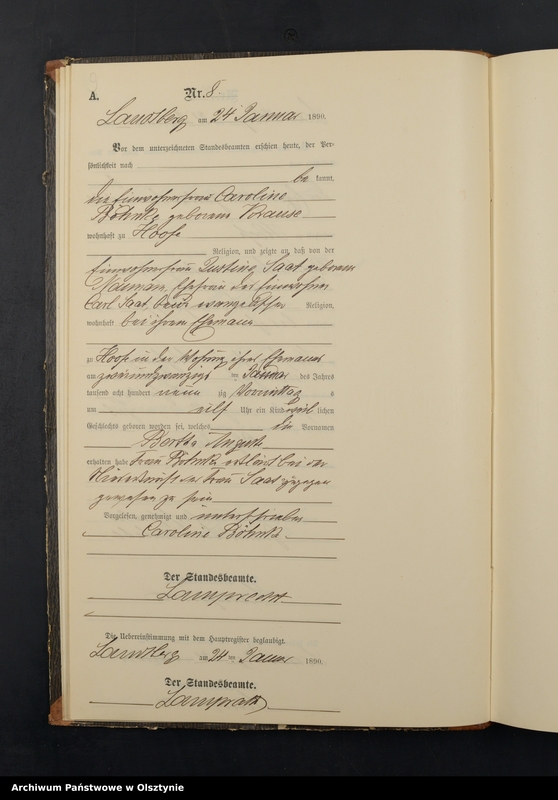 A.
Nr. 8
Landsberg am 24 Januar 1890.
Vor dem unterzeichneten Standesbeamten erschien heute, der Per-
sönlichkeit nach
be kannt,
die Einwohnerfrau Caroline
Böhnke geborene Krause
wohnhaft zu Hoofe
Religion, und zeigte an, daß von der
Einwohnerfrau Justine Saat geborene
Neumann, Ehefrau des Einwohners
Carl Saat, beide evangelischer Religion,
wohnhaft bei ihrem Ehemann
zu Hoofe in der Wohnung ihres Ehemanns
am zweiundzwanzigsten Januar des Jahres
tausend acht hundert neun zig Vormittag s
um elf Uhr ein Kind weib lichen
Geschlechts geboren worden sei, welches die Vornamen
Bertha Auguste
erhalten habe Frau Böhnke erklärt bei der
Niederkunft der Frau Saat zugegen
gewesen zu sein
Vorgelesen, genehmigt und unterschrieben
Caroline Böhnke
Der Standesbeamte.
Lamprecht
Die Uebereinstimmung mit dem Hauptregister beglaubigt.
Landsberg am 24 ten Januar 1890.
Der Standesbeamte.
Lamprecht
Archiwum Państwowe w Olsztynie